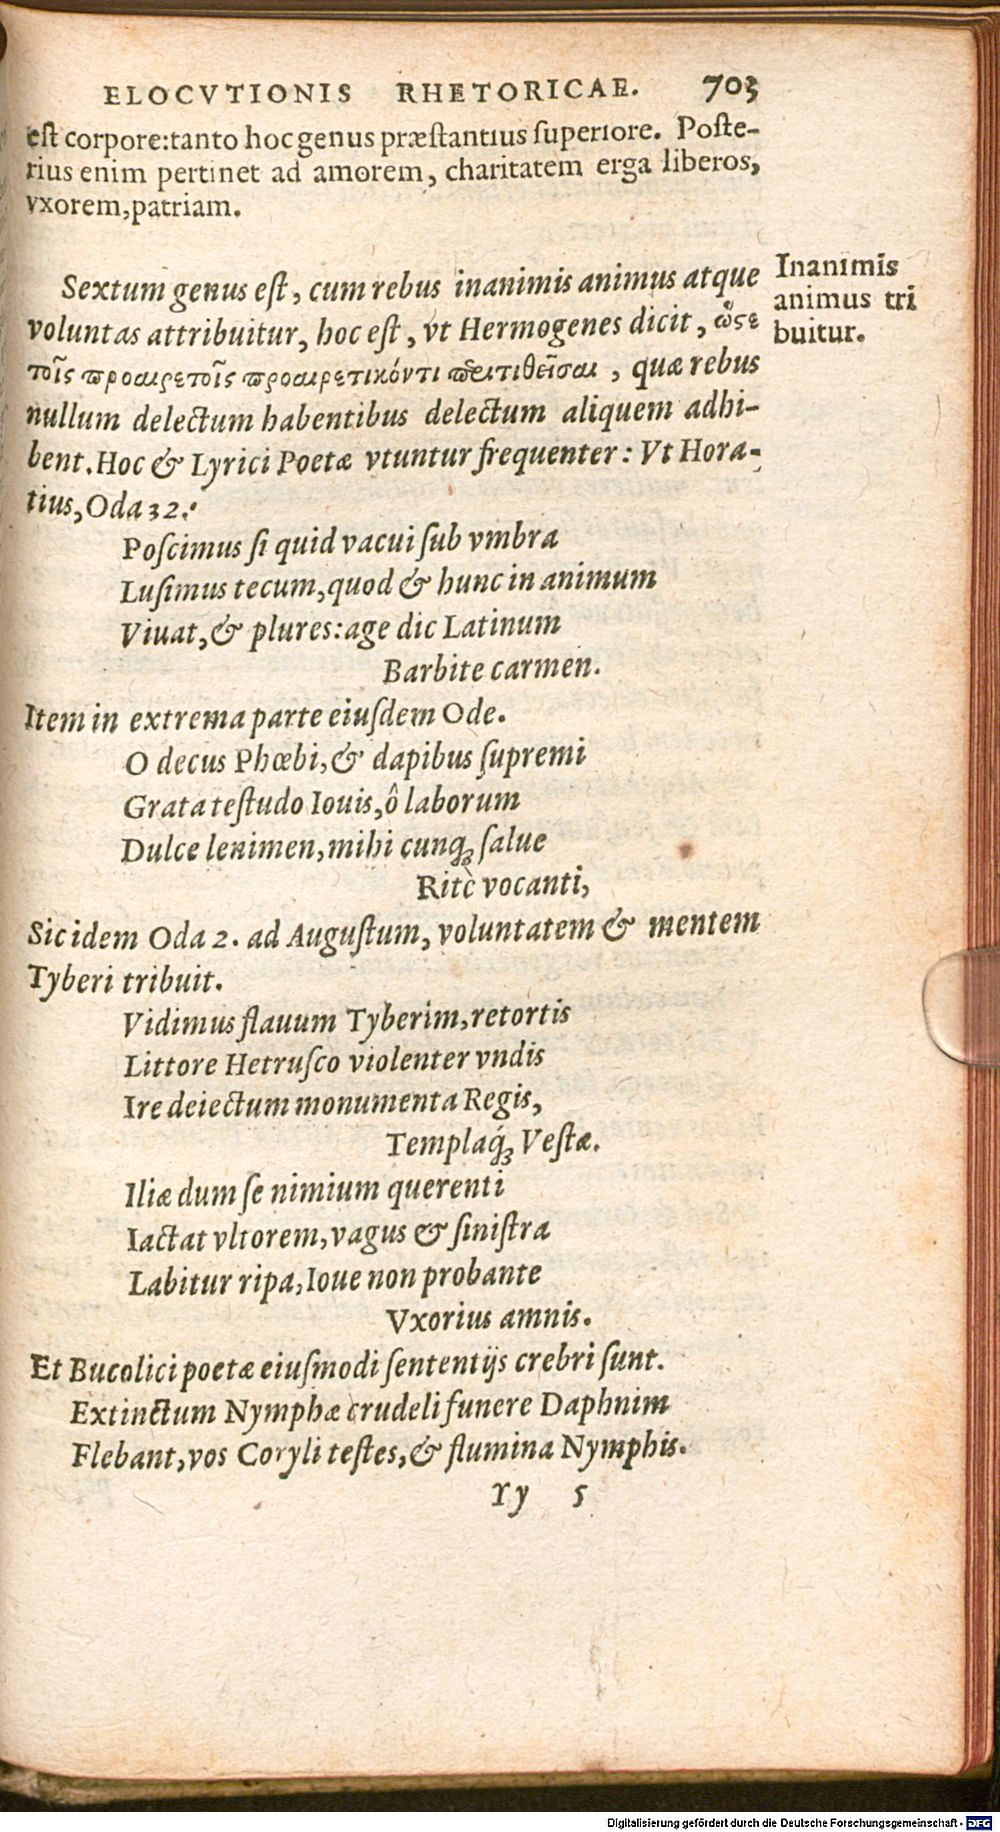 ELOCVTIONIS RHETORICAE. 703
est corpore:tanto hoc genus præstantius superiore. Poste-
rius enim pertinet ad amorem, charitatem erga liberos,
vxorem,patriam.
Sextum genus est, cum rebus inanimis animus atque
voluntas attribuitur, hoc est, vt Hermogenes dicit,
quæ rebus
nullum delectum habentibus delectum aliquem adhi-
bent. Hoc & Lyrici Poetæ vtuntur frequenter: Vt Hora-
tius, Oda 32.
Inanimis
animus tri
buitur.
Poscimus si quid vacui sub vmbra
Lusimus tecum,quod & hunc in animum
Viuat,& plures:age dic Latinum
Barbite carmen.
Item in extrema parte eiusdem Ode.
O decus Phœbi,& dapibus supremi
Grata testudo Iouis,ô laborum
Dulce lenimen,mihi cunq; salue
Ritè vocanti,
Sic idem Oda 2. ad Augustum, voluntatem & mentem
Tyberi tribuit.
Vidimus flauum Tyberim,retortis
Littore Hetrusco violenter vndis
Ire deiectum monumenta Regis,
Templaq́; Vestæ.
Iliæ dum se nimium querenti
Iactat vltorem,vagus & sinistra
Labitur ripa,Ioue non probante
Vxorius amnis.
Et Bucolici poetæ eiusmodi sententijs crebri sunt.
Extinctum Nymphæ crudeli funere Daphnim
Flebant,vos Coryli testes,& flumina Nymphis.
Yy 5
Digitalisierung gefördert durch die Deutsche Forschungsgemeinschaft - DFG